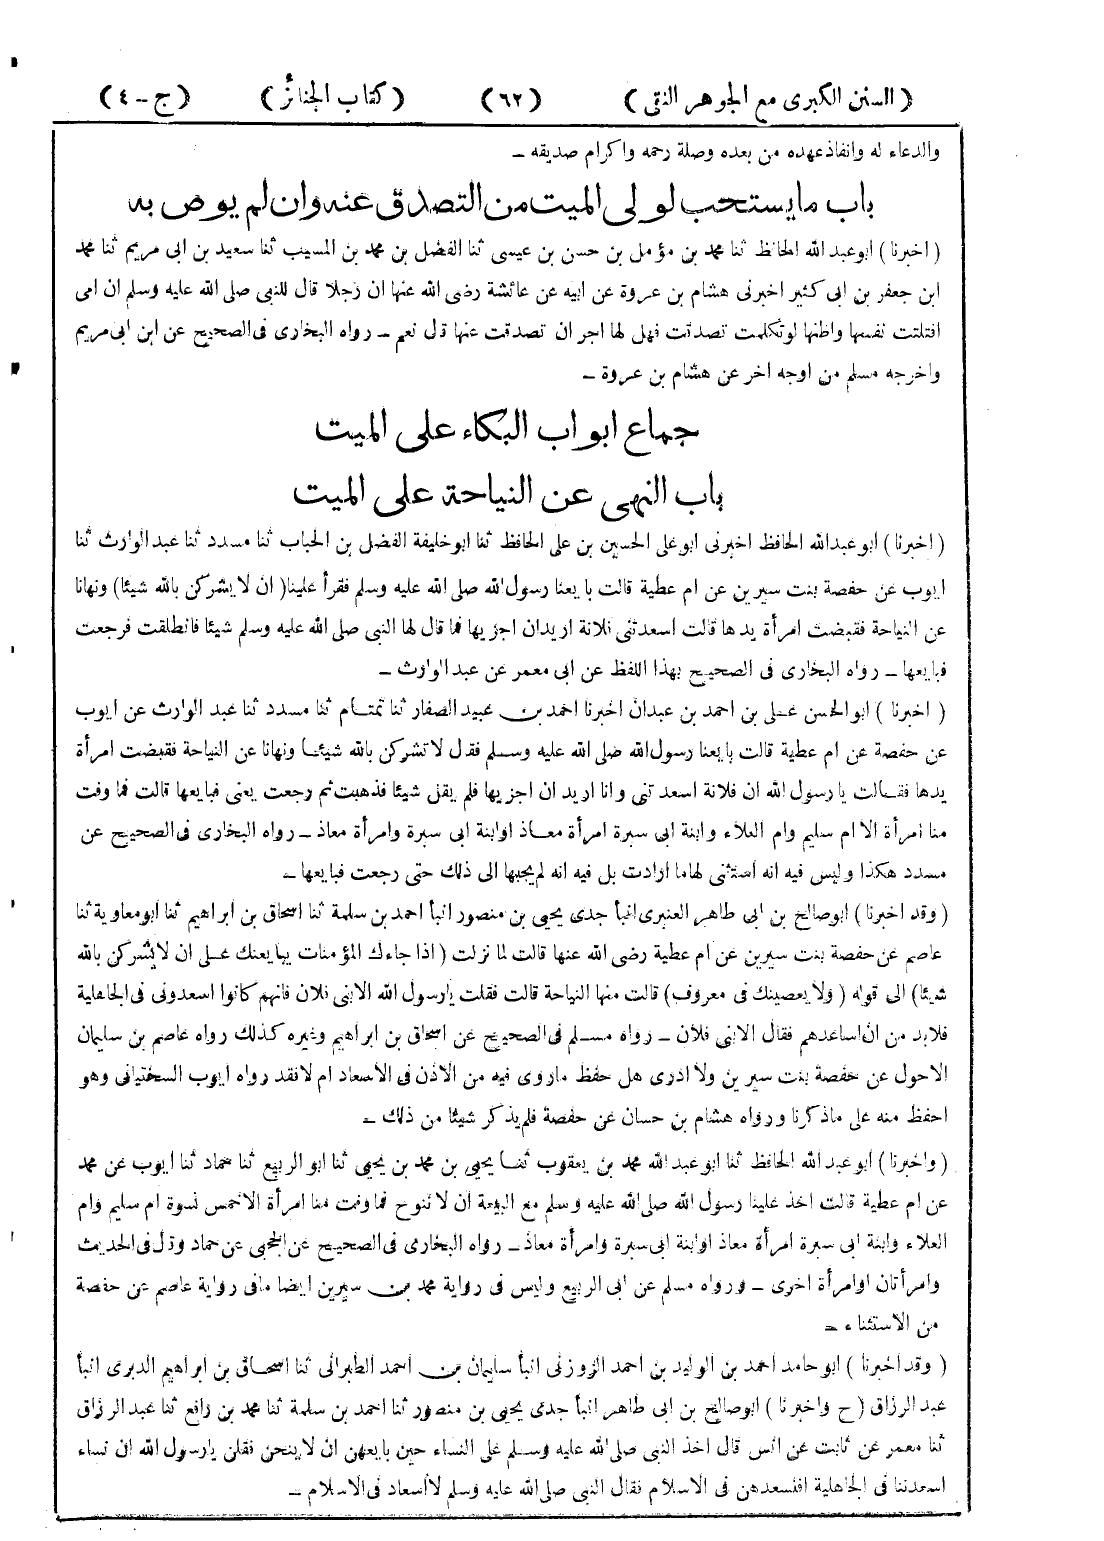 ( السنن الكبرى مع الجوهر النقى ) ( ٦٢ ) ( كتاب الجنائز ) ( ج - ٤ )
والدعاء له وانفاذ عهده من بعده وصلة رحمه واكرام صديقه –
باب ما يستحب لولى الميت من التصدق عنه وان لم يوص به
( اخبرنا ) أبو عبد الله الحافظ ثنا محمد بن مؤمل بن حسن بن عيسى ثنا الفضل بن محمد بن المسيب ثنا سعيد بن ابى مريم ثنا محمد
ابن جعفر بن ابى كثير اخبرنى هشام بن عروة عن ابيه عن عائشة رضى الله عنها ان رجلا قال للنبى صلى الله عليه وسلم ان امى
افتلتت نفسها واظنها لو تكلمت تصدقت فهل لها اجر ان تصدقت عنها قال نعم – رواه البخارى فى الصحيح عن ابن ابى مريم
واخرجه مسلم من اوجه اخر عن هشام بن عروة –
جماع ابواب البكاء على الميت
باب النهى عن النياحة على الميت
( اخبرنا ) أبو عبد الله الحافظ اخبرنى ابو على الحسين بن على الحافظ ثنا ابو خليفة الفضل بن الحباب ثنا مسدد ثنا عبد الوارث ثنا
ايوب عن حفصة بنت سيرين عن ام عطية قالت بايعنا رسول الله صلى الله عليه وسلم فقرأ علينا ( ان لا يشركن بالله شيئا ) ونهانا
عن النياحة فقبضت امرأة يدها قالت اسعدتنى فلانة اريد ان اجزيها فما قال لها النبى صلى الله عليه وسلم شيئا فانطلقت فرجعت
فبايعها – رواه البخارى فى الصحيح بهذا اللفظ عن ابى معمر عن عبد الوارث –
( اخبرنا ) ابو الحسن على بن احمد بن عبدان اخبرنا احمد بن عبيد الصفار ثنا تمتام ثنا مسدد ثنا عبد الوارث عن ايوب
عن حفصة عن ام عطية قالت بايعنا رسول الله صلى الله عليه وسلم فقال لا تشركن بالله شيئا ونهانا عن النياحة فقبضت امرأة
يدها فقالت يا رسول الله ان فلانة اسعدتنى وانا اريد ان اجزيها فلم يقل شيئا فذهبت ثم رجعت يعنى فبايعها قالت فما وفت
منا امرأة الا ام سليم وام العلاء وابنة ابى سبرة امرأة معاذ اوابنة ابى سبرة وامرأة معاذ – رواه البخارى فى الصحيح عن
مسدد هكذا وليس فيه انه استثنى لها ما ارادت بل فيه انه لم يجبها الى ذلك حتى رجعت فبايعها –
( وقد اخبرنا ) ابو صالح بن ابى طاهر العنبرى انبأ جدى يحيى بن منصور انبأ احمد بن سلمة ثنا اسحاق بن ابراهيم ثنا ابو معاوية ثنا
عاصم عن حفصة بنت سيرين عن ام عطية رضى الله عنها قالت لما نزلت ( اذا جاءك المؤمنات يبايعنك على ان لا يشركن بالله
شيئا ) الى قوله ( ولا يعصينك فى معروف ) قالت منها النياحة قالت فقلت يا رسول الله الابنى فلان فانهم كانوا اسعدونى فى الجاهلية
فلا بد من ان اساعدهم فقال الابنى فلان – رواه مسلم فى الصحيح عن اسحاق بن ابراهيم وغيره كذلك رواه عاصم بن سليمان
الاحول عن حفصة بنت سيرين ولا ادرى هل حفظ ما روى فيه من الاذن فى الاسعاد ام لا فقد رواه ايوب السختيانى وهو
احفظ منه على ما ذكرنا ورواه هشام بن حسان عن حفصة فلم يذكر شيئا من ذلك –
( واخبرنا ) أبو عبد الله الحافظ ثنا ابو عبد الله محمد بن يعقوب ثنا يحيى بن محمد بن يحيى ثنا ابو الربيع ثنا حماد ثنا ايوب عن محمد
عن ام عطية قالت اخذ علينا رسول الله صلى الله عليه وسلم مع البيعة ان لا ننوح فما وفت منا امرأة الا خمس نسوة ام سليم وام
العلاء وابنة ابى سبرة امرأة معاذ اوابنة ابى سبرة وامرأة معاذ – رواه البخارى فى الصحيح عن الحجبى عن حماد وقال فى الحديث
وامرأتان اوامرأة اخرى – ورواه مسلم عن ابى الربيع وليس فى رواية محمد بن سيرين ايضا ما فى رواية عاصم عن حفصة
من الاستثناء –
( وقد اخبرنا ) ابو حامد احمد بن الوليد بن احمد الزوزنى انبأ سليمان بن احمد الطبرانى ثنا اسحاق بن ابراهيم الدبرى انبأ
عبد الرزاق ( ح واخبرنا ) ابو صالح بن ابى طاهر انبأ جدى يحيى بن منصور ثنا احمد بن سلمة ثنا محمد بن رافع ثنا عبد الرزاق
ثنا معمر عن ثابت عن انس قال اخذ النبى صلى الله عليه وسلم على النساء حين بايعهن ان لا ينحن فقلن يا رسول الله ان نساء
اسعدننا فى الجاهلية افنسعدهن فى الاسلام فقال النبى صلى الله عليه وسلم لا اسعاد فى الاسلام –